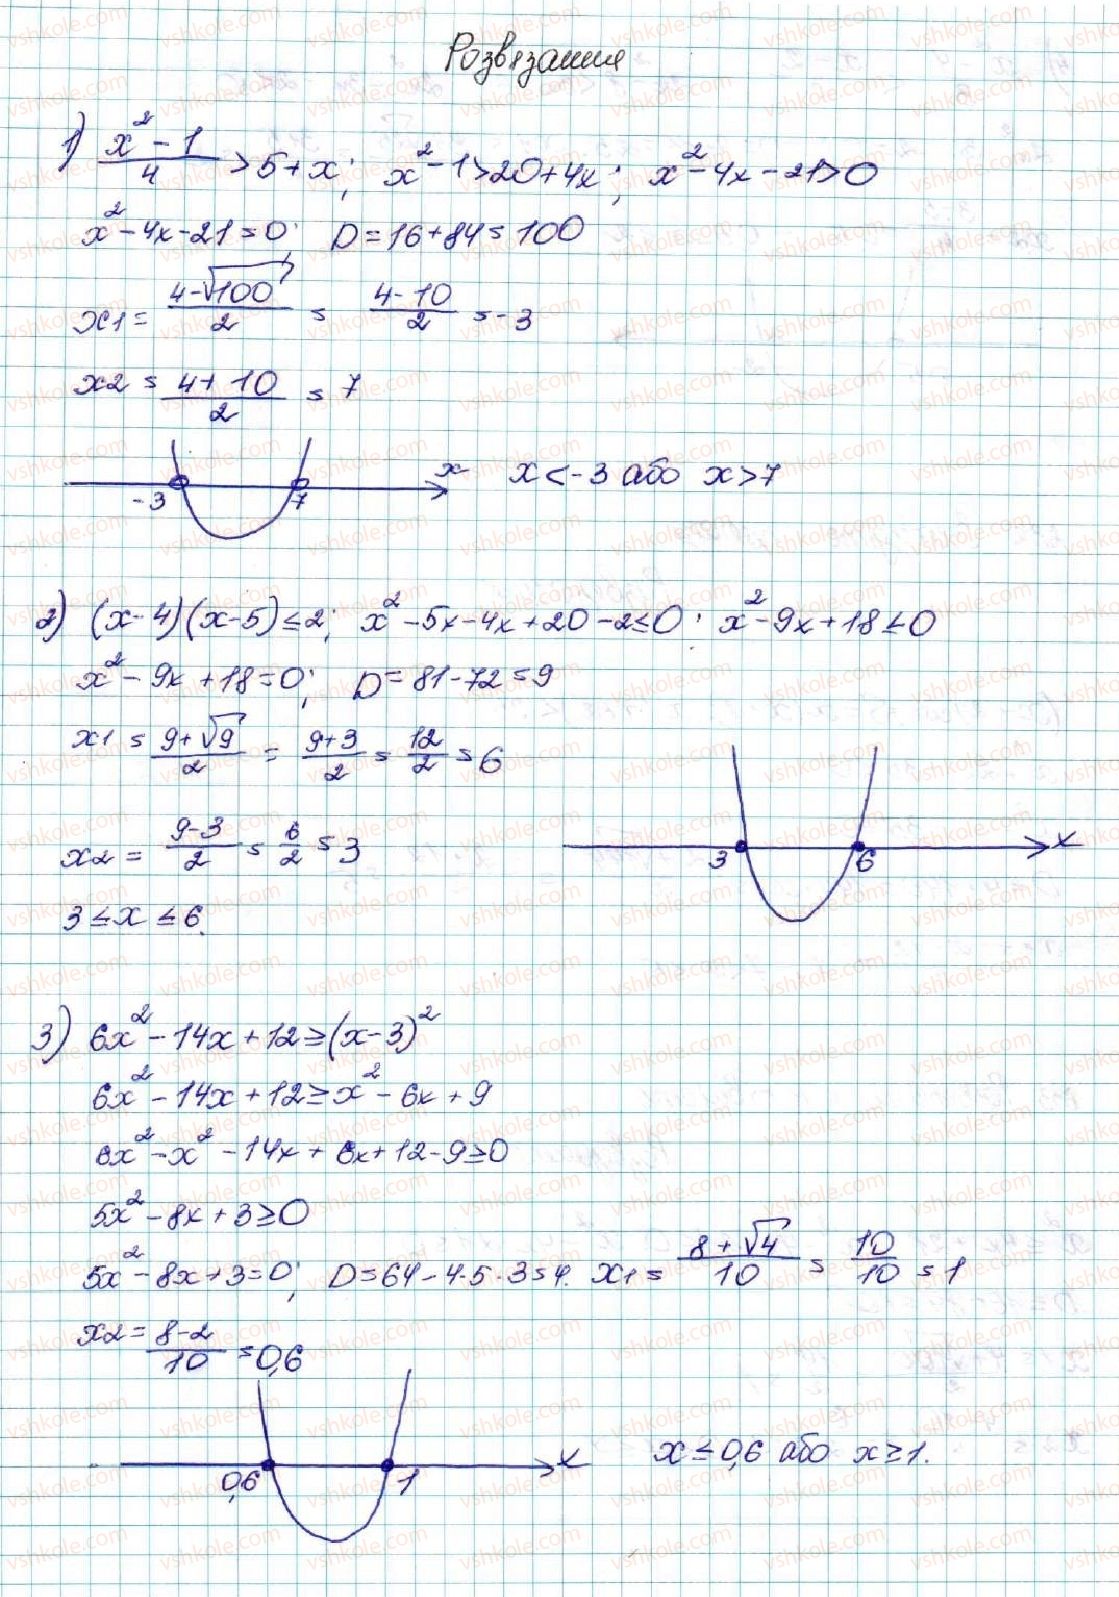 Розв'язання
1) (x² - 1)/4 > 5 + x; x² - 1 > 20 + 4x; x² - 4x - 21 > 0
x² - 4x - 21 = 0; D = 16 + 84 = 100
x1 = (4 - √100)/2 = (4 - 10)/2 = -3
x2 = (4 + 10)/2 = 7
-3 7 x x < -3 або x > 7
2) (x - 4)(x - 5) ≤ 2; x² - 5x - 4x + 20 - 2 ≤ 0; x² - 9x + 18 ≤ 0
x² - 9x + 18 = 0; D = 81 - 72 = 9
x1 = (9 + √9)/2 = (9 + 3)/2 = 12/2 = 6
x2 = (9 - 3)/2 = 6/2 = 3
3 6 x
3 ≤ x ≤ 6.
3) 6x² - 14x + 12 ≥ (x - 3)²
6x² - 14x + 12 ≥ x² - 6x + 9
6x² - x² - 14x + 6x + 12 - 9 ≥ 0
5x² - 8x + 3 ≥ 0
5x² - 8x + 3 = 0; D = 64 - 4·5·3 = 4. x1 = (8 + √4)/10 = 10/10 = 1
x2 = (8 - 2)/10 = 0,6
0,6 1 x x ≤ 0,6 або x ≥ 1.
vshkole.com